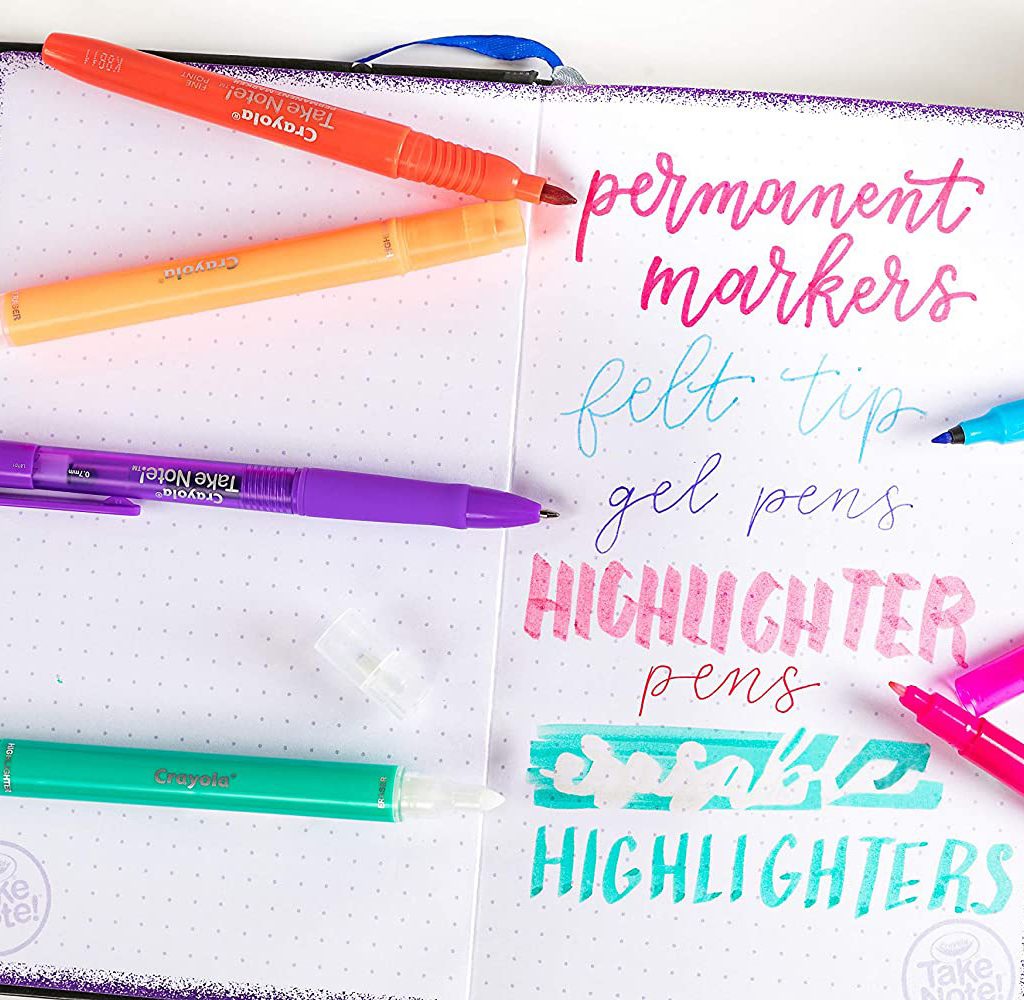 K8611
FINE
POINT
Crayola®
Take Note!™
PERMANENT MARKER
Crayola®
HIGH
ERASER
0.7mm
Crayola®
Take Note!™
HIGHLIGHTER
Crayola®
ERASER
Take
Note!
permanent
markers
felt tip
gel pens
HIGHLIGHTER
pens
erasable
HIGHLIGHTERS
Crayola
Take
Note!